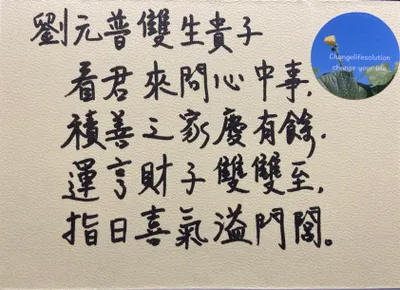 劉元普雙生貴子
看君來問心中事,
積善之家慶有餘.
運亨財子雙雙至,
指日喜氣溢門閭。
Changelifesolution
change your life